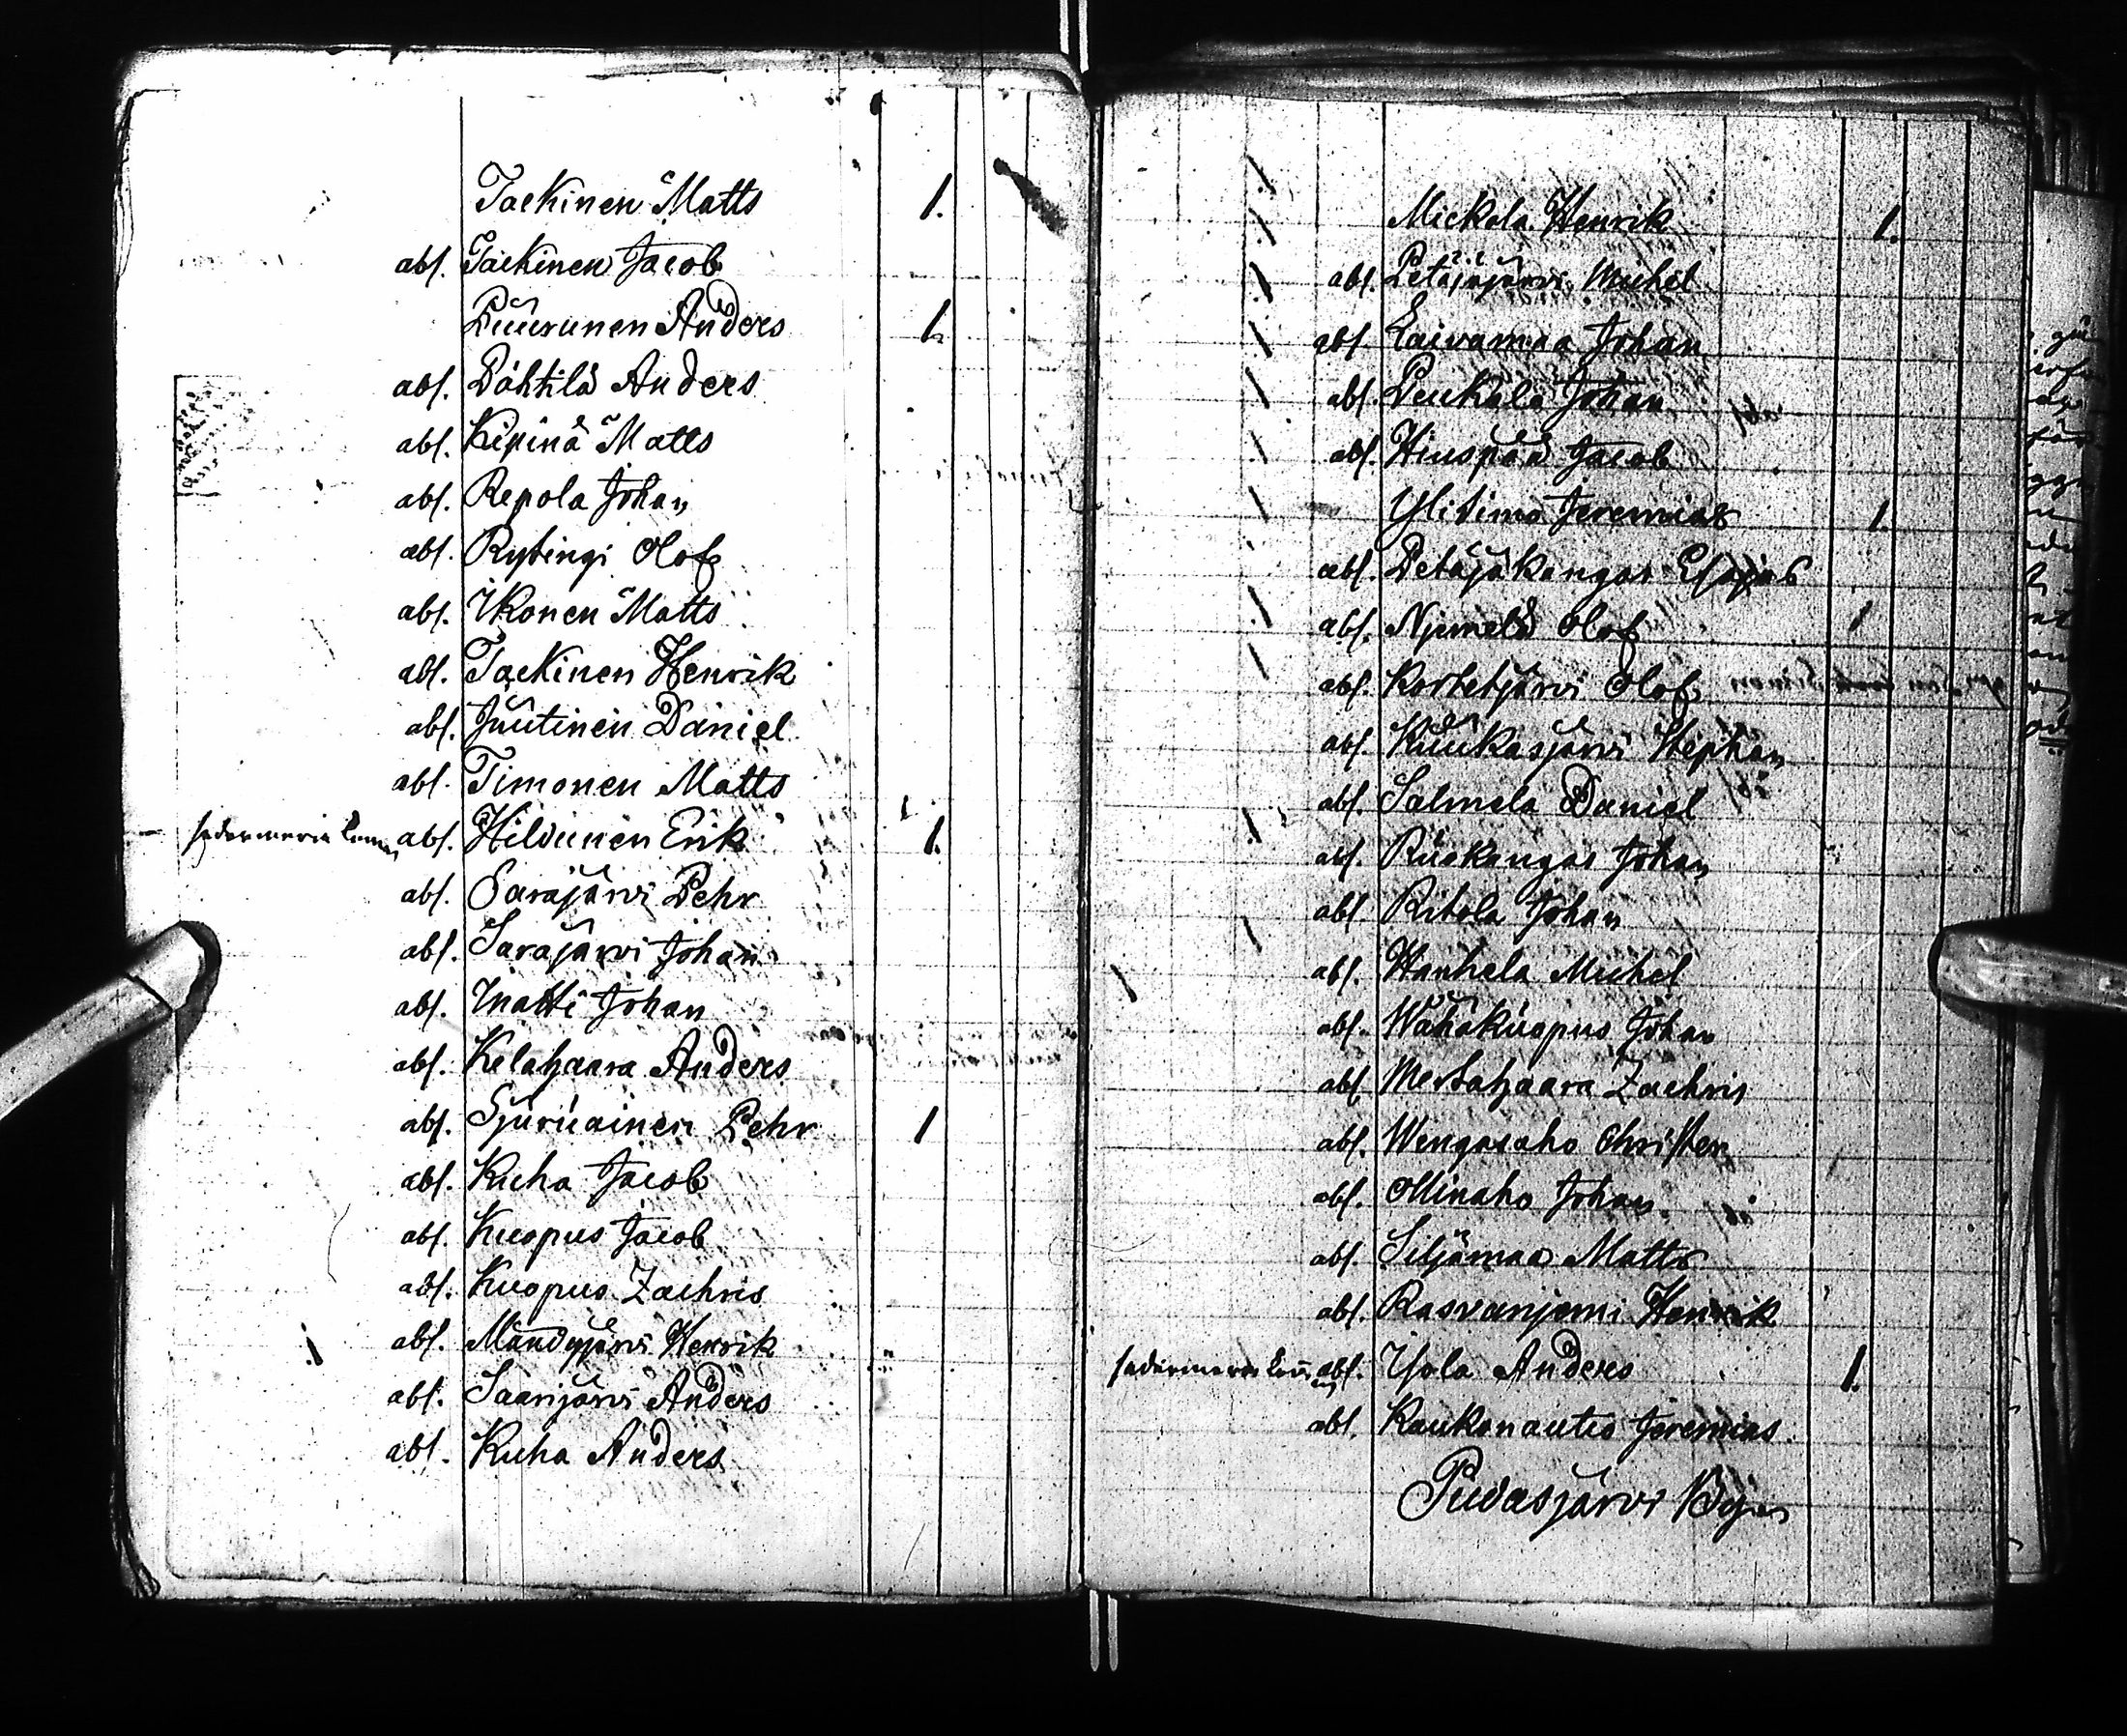 Taekinen Matts 1.
abs. Taekinen Jacob
Puurunen Anders 1.
abs. Pähtilä Anders
abs. Kipinä Matts
abs. Repola Johan
abs. Rytingi Olof
abs. Ikonen Matts
abs. Taekinen Henrik
abs. Juutinen Daniel
abs. Timonen Matts
abs. Hildunen Erik 1.
abs. Sarajärvi Pehr
abs. Sarajärvi Johan
abs. Inatti Johan
abs. Kelahaara Anders
abs. Sjuruainen Pehr 1
abs. Kuha Jacob
abs. Kuopus Jacob
abs. Kuopus Zachris
abs. Mändyjärvi Henrik
abs. Saarijärvi Anders
abs. Kuha Anders
Mickola Henrik 1.
abs. Petäjäjärvi Michel
abs. Laivamaa Johan
abs. Poukala Johan
abs. Hiuspää Jacob
Ylitimo Jeremias 1.
abs. Petäjäkangas Esajas
abs. Njemelä Olof 1
abs. Kortetjärvi Olof
abs. Kuukasjärvi Stephan
abs. Salmela Daniel
abs. Ruokangas Johan
abs. Ritola Johan
abs. Wanhela Michel
abs. Wähäkuopus Johan
abs. Mertahaara Zachris
abs. Wengasaho Christer
abs. Ollinaho Johan
abs. Siljämaa Matts
abs. Rasvanjemi Henrik
abs. Isola Anders 1.
abs. Kaukonautio Jeremias
Pudasjärvi By